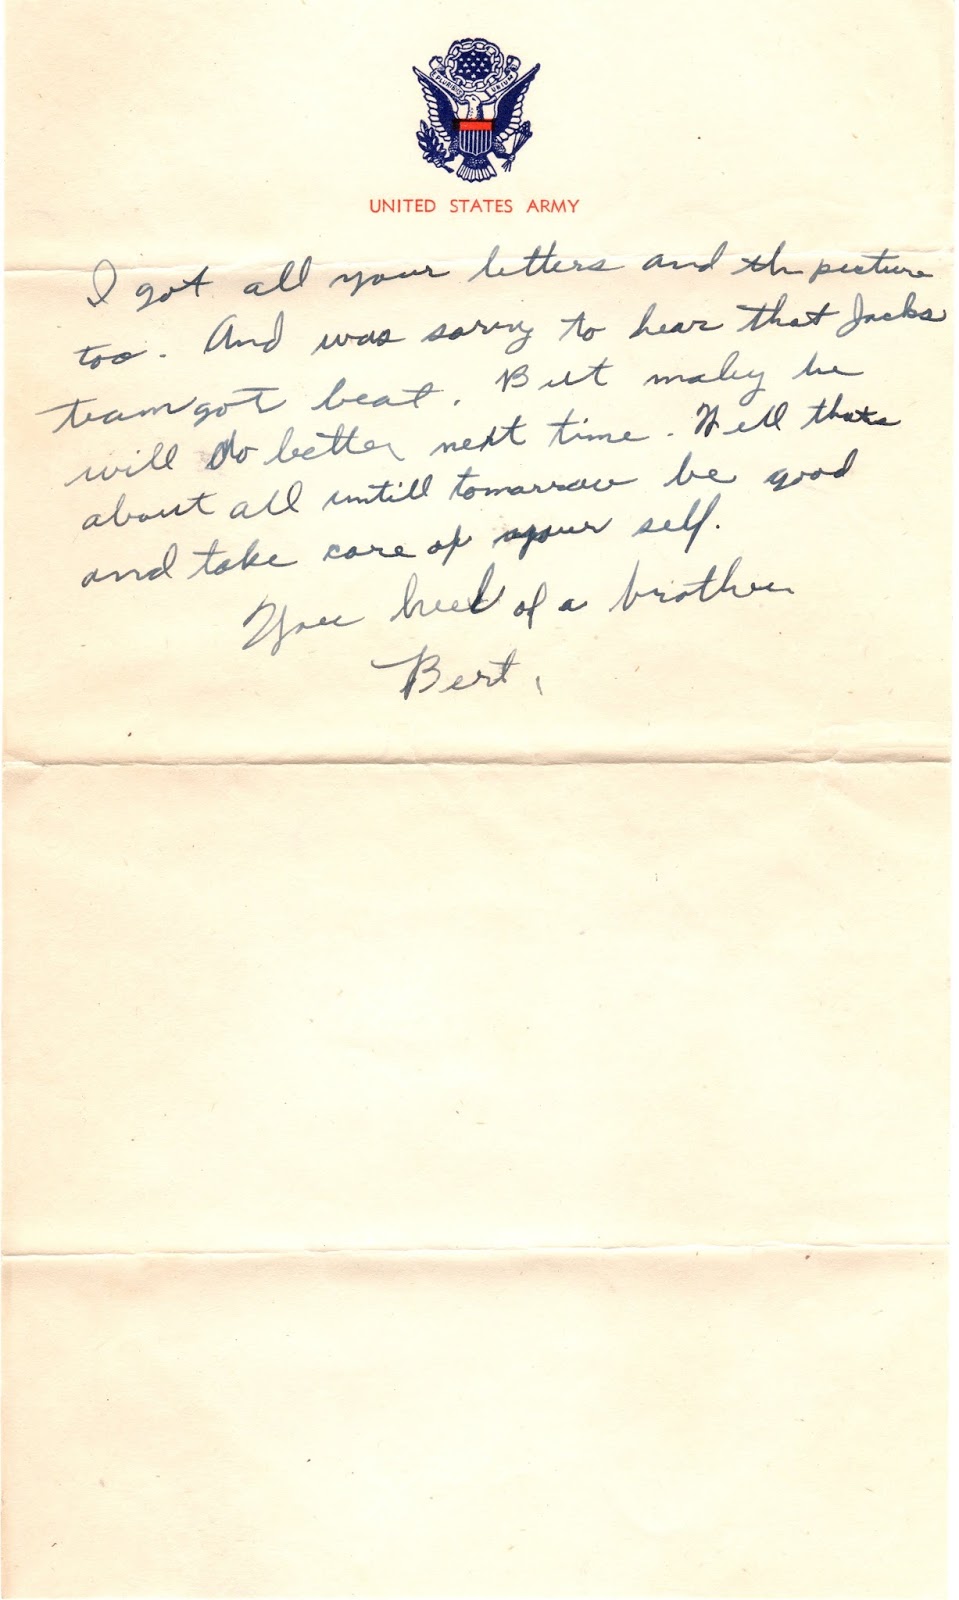 PLURIBUS UNUM
UNITED STATES ARMY
I got all your letters and th picture
too. And was sorry to hear that Jacks
team got beat. But mabey he
will do better next time. Well thats
about all untill tomarrow be good
and take care of your self.
Your heel of a brother
Bert.